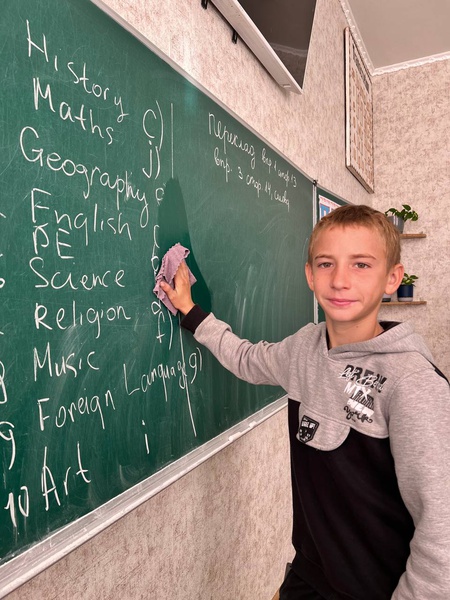 History
Maths c)
j)
Geography
English
PE
Science
Religion
f)
Music
9 Foreign Language g)
10 Art i
Переклад впр 1 стор 13
впр. 3 стор. 14, слова